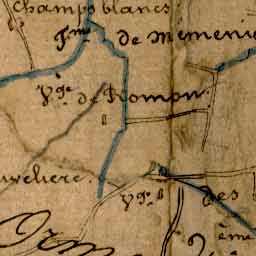 Champs blancs
f.me de Memenie
V.ge de Romon.
uveliere.
V.ge des
Orm
2 ème